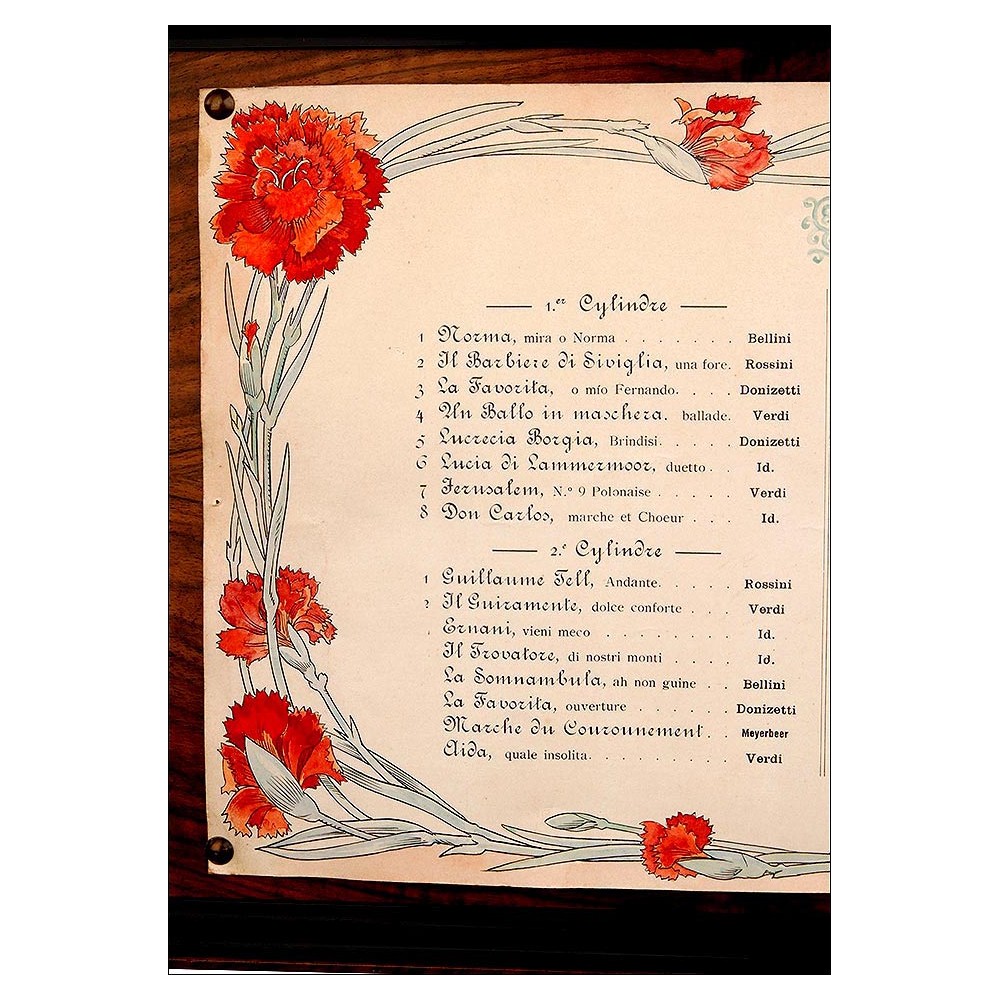 1.er Cylindre
1 Norma, mira o Norma . . . . . . . Bellini
2 Il Barbiere di Siviglia, una fore. Rossini
3 La Favorita, o mío Fernando. . . . Donizetti
4 Un Ballo in maschera. ballade. Verdi
5 Lucrecia Borgia, Brindisi. . . . . Donizetti
6 Lucia di Lammermoor, duetto . . Id.
7 Jerusalem, N.º 9 Polonaise . . . . . Verdi
8 Don Carlos, marche et Choeur . . . Id.
2.e Cylindre
1 Guillaume Tell, Andante. . . . . Rossini
2 Il Guiramente, dolce conforte . . . Verdi
Ernani, vieni meco . . . . . . . . Id.
Il Trovatore, di nostri monti . . . . Id.
La Somnambula, ah non guine . . Bellini
La Favorita, ouverture . . . . . . Donizetti
Marche du Courounement . . Meyerbeer
Aida, quale insolita. . . . . . . . . Verdi